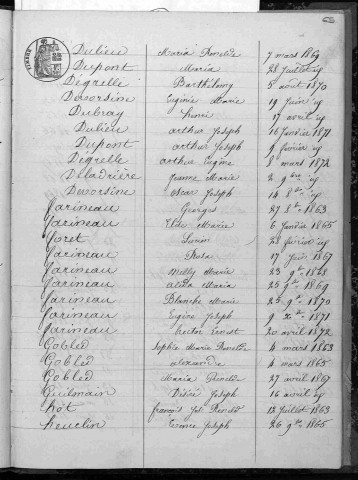 66
Dulieu Maria 7 mars 1869
Dupont Maria 28 Juillet id
Dégrelle Barthélemy 5 août 1870
Desorsine Eugénie Marie 19 Juin id
Dubray henri 17 avril id
Dulieu arthur Joseph 16 Janvier 1871
Dupont arthur Joseph 9 février id
Dégrelle arthur Eugène 8 mars 1872
Deladrière Jeanne Marie 2 9bre id
Desorsine Oscar Joseph 14 8bre id
farineau Georges 27 8bre 1863
farineau Elise Marie 6 Janvier 1865
foret 28 février id
farineau Rosa 17 Juin 1867
farineau Milly Marie 23 9bre 1868
farineau alida Maria 25 9bre 1869
farineau Blanche Marie 25 9bre 1870
farineau Eugène Joseph 9 Xbre 1871
farineau hector Ernest 20 avril 1872
Gobled Sophie Marie 4 mars 1863
Gobled alexandre 4 mars 1865
Gobled Maria 27 avril 1867
Guilmain Désiré Joseph 16 avril id
hót françois 12 Juillet 1863
heuclin Ermence Joseph 26 9bre 1865